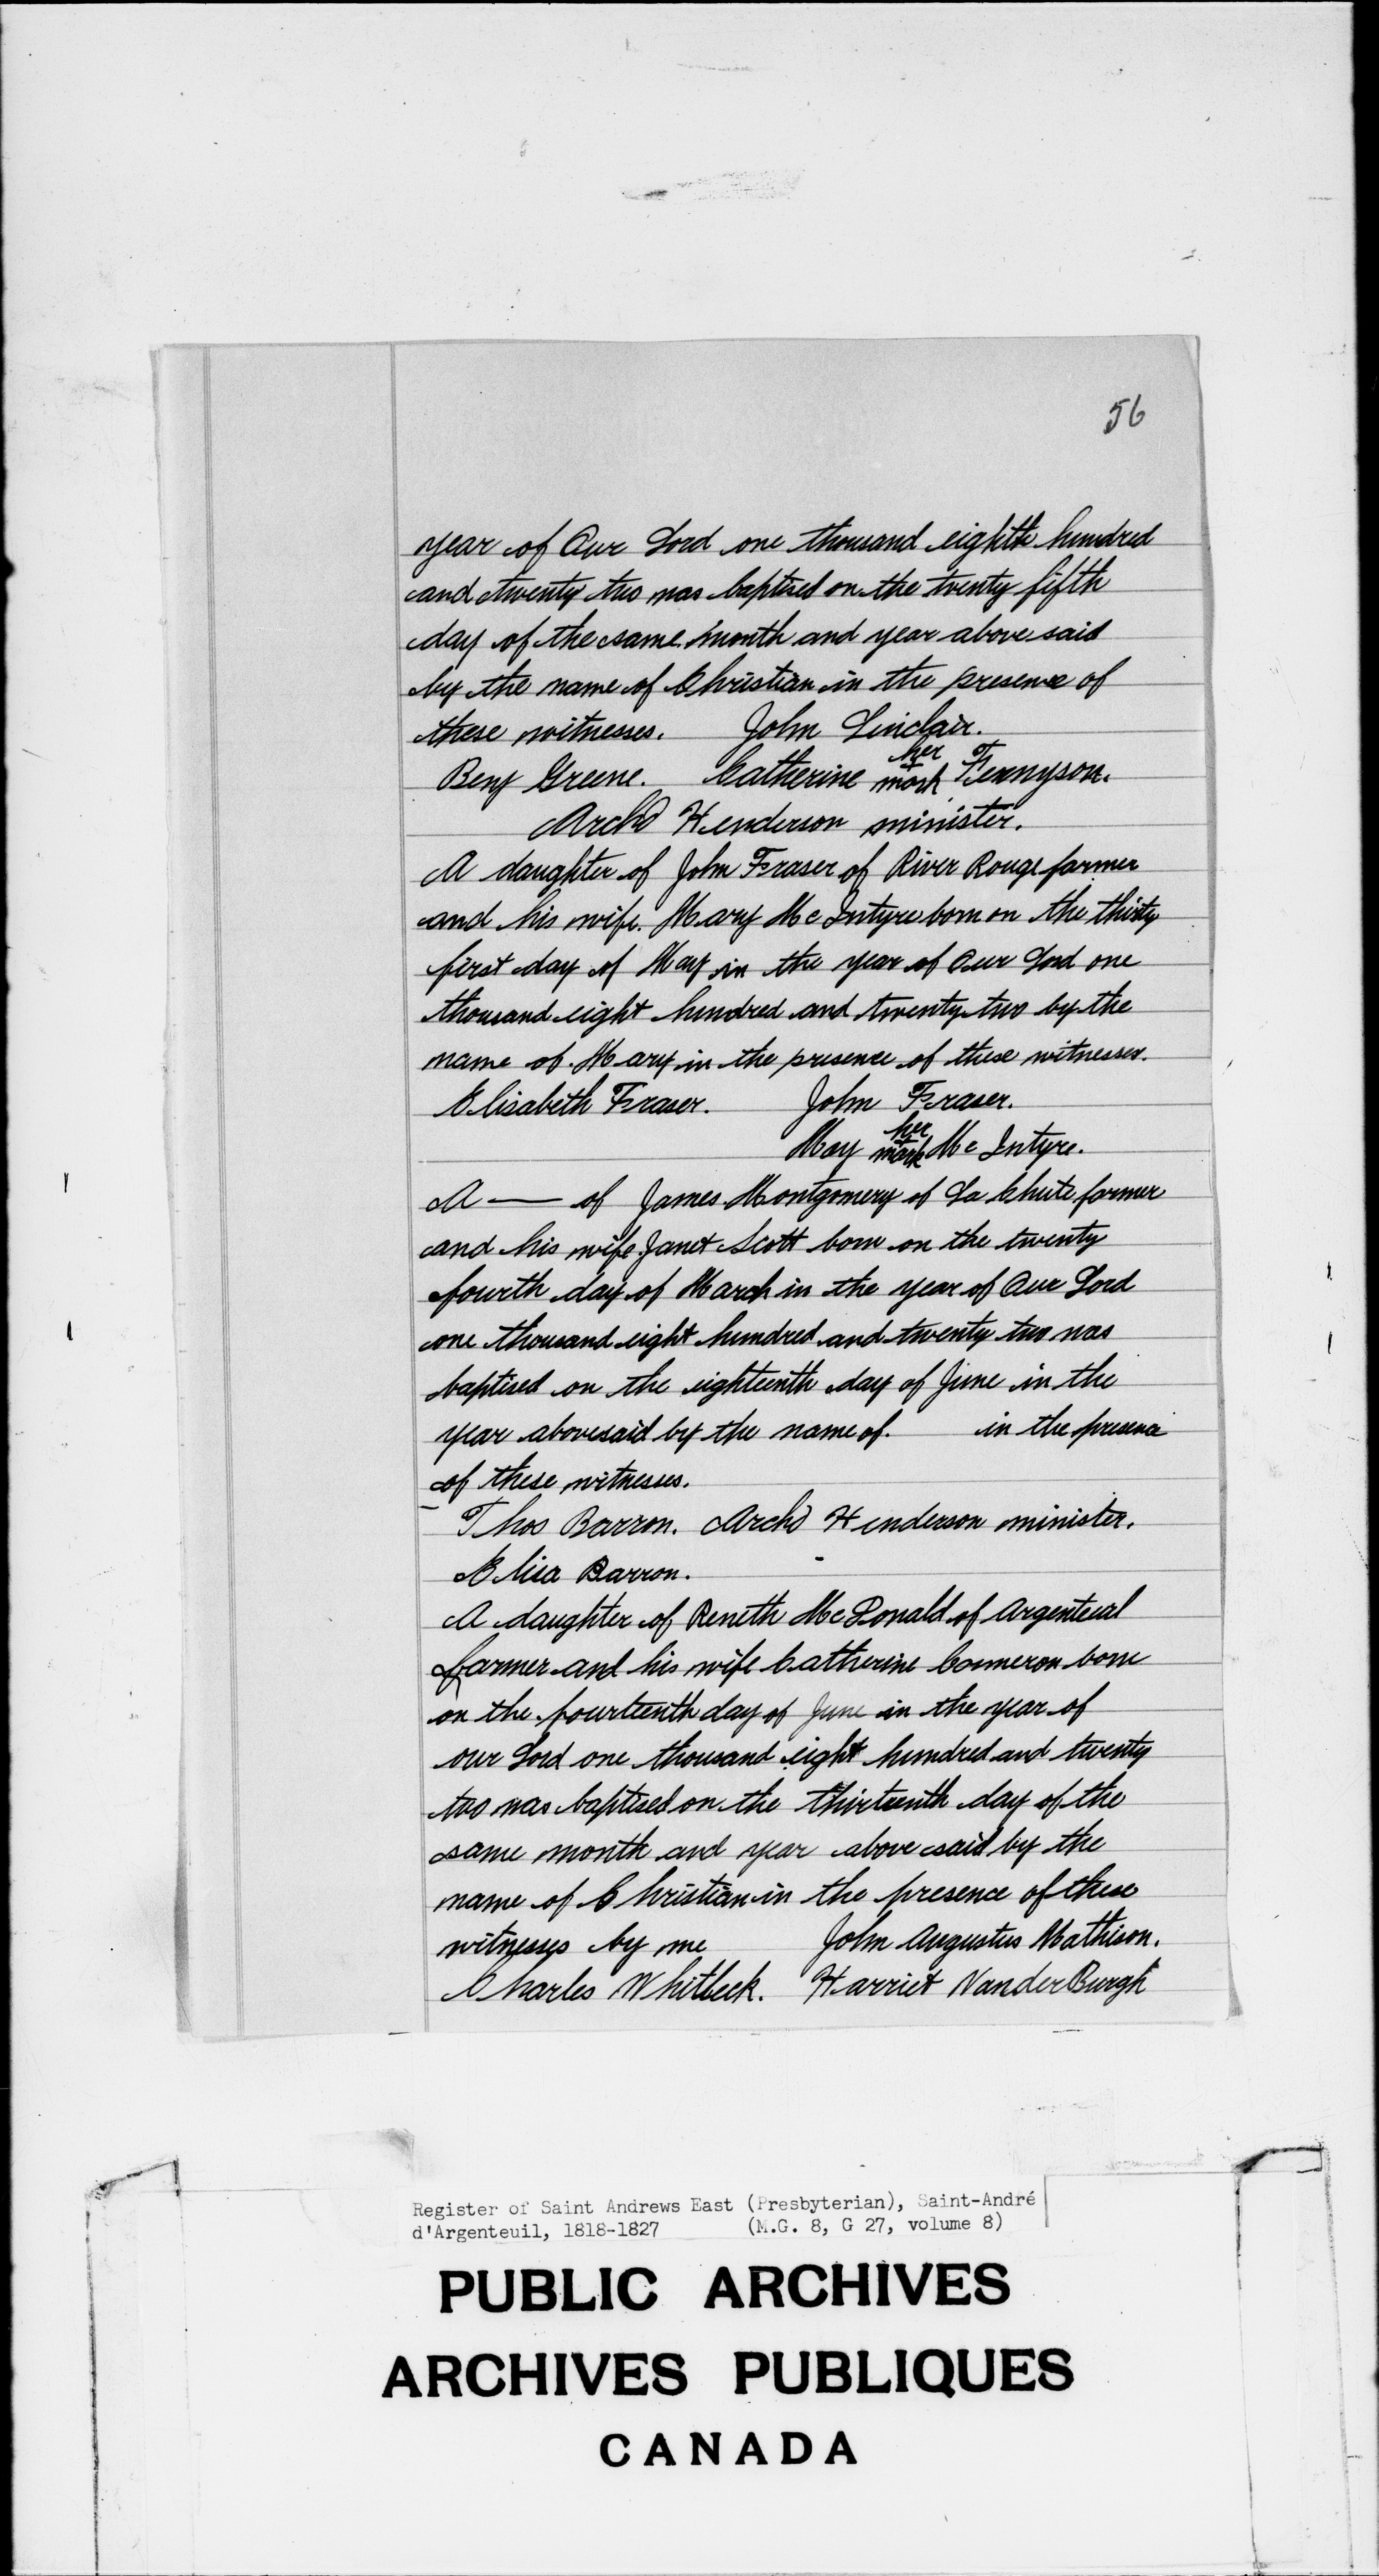 56
year of Our Lord one thousand eighth hundred
and twenty two was baptised on the twenty fifth
day of the same month and year above said
by the name of Christian in the presence of
these witnesses. John Sinclair.
Benj Greene. Catherine her + mark Tennyson.
Archd Henderson minister.
A daughter of John Fraser of River Rouge farmer
and his wife Mary McIntyre born on the thirty
first day of May in the year of Our Lord one
thousand eight hundred and twenty two by the
name of Mary in the presence of these witnesses.
Elisabeth Fraser. John Fraser.
May her + mark McIntyre.
A — of James Montgomery of La Chute farmer
and his wife Janet Scott born on the twenty
fourth day of March in the year of Our Lord
one thousand eight hundred and twenty two was
baptised on the eighteenth day of June in the
year abovesaid by the name of. in the presence
of these witnesses.
Thos Barron. Archd Henderson minister.
Elisa Barron.
A daughter of Reneth McDonald of Argenteuil
farmer and his wife Catherine Cameron born
on the fourteenth day of June in the year of
our Lord one thousand eight hundred and twenty
two was baptised on the thirteenth day of the
same month and year above said by the
name of Christian in the presence of these
witnesses by me John Augustus Mathison.
Charles Whitbeck. Harriet VanderBurgh
Register of Saint Andrews East (Presbyterian), Saint-André
d'Argenteuil, 1818-1827 (M.G. 8, G 27, volume 8)
PUBLIC ARCHIVES
ARCHIVES PUBLIQUES
CANADA